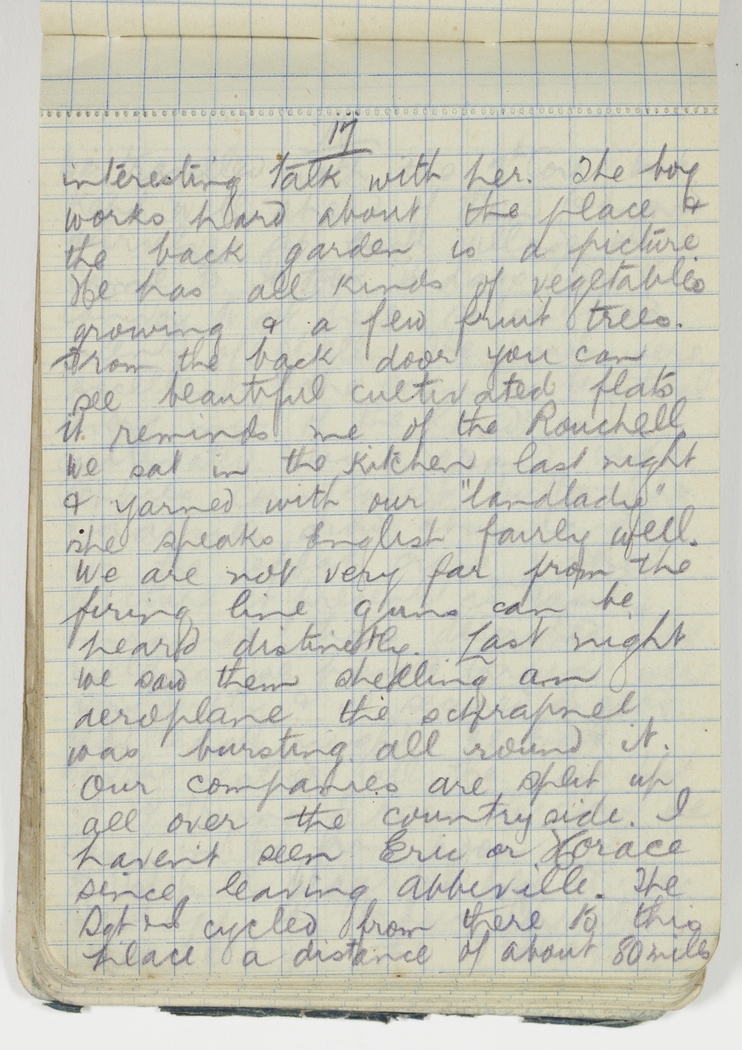 17
interesting talk with her. The boy
works hard about the place &
the back garden is a picture
He has all kinds of vegetables
growing & a few fruit trees.
From the back door you can
see beautiful cultivated flats
it reminds me of the Rouchell
We sat in the kitchen last night
& yarned with our "landlady"
she speaks English fairly well.
We are not very far from the
firing line guns can be
heard distinctly. Last night
we saw them shelling an
aeroplane the schrapnel
was bursting all round it.
Our companies are split up
all over the countryside. I
haven't seen Eric or Horace
since leaving Abbeville. The
Sgt & I cycled from there to this
place a distance of about 80 miles